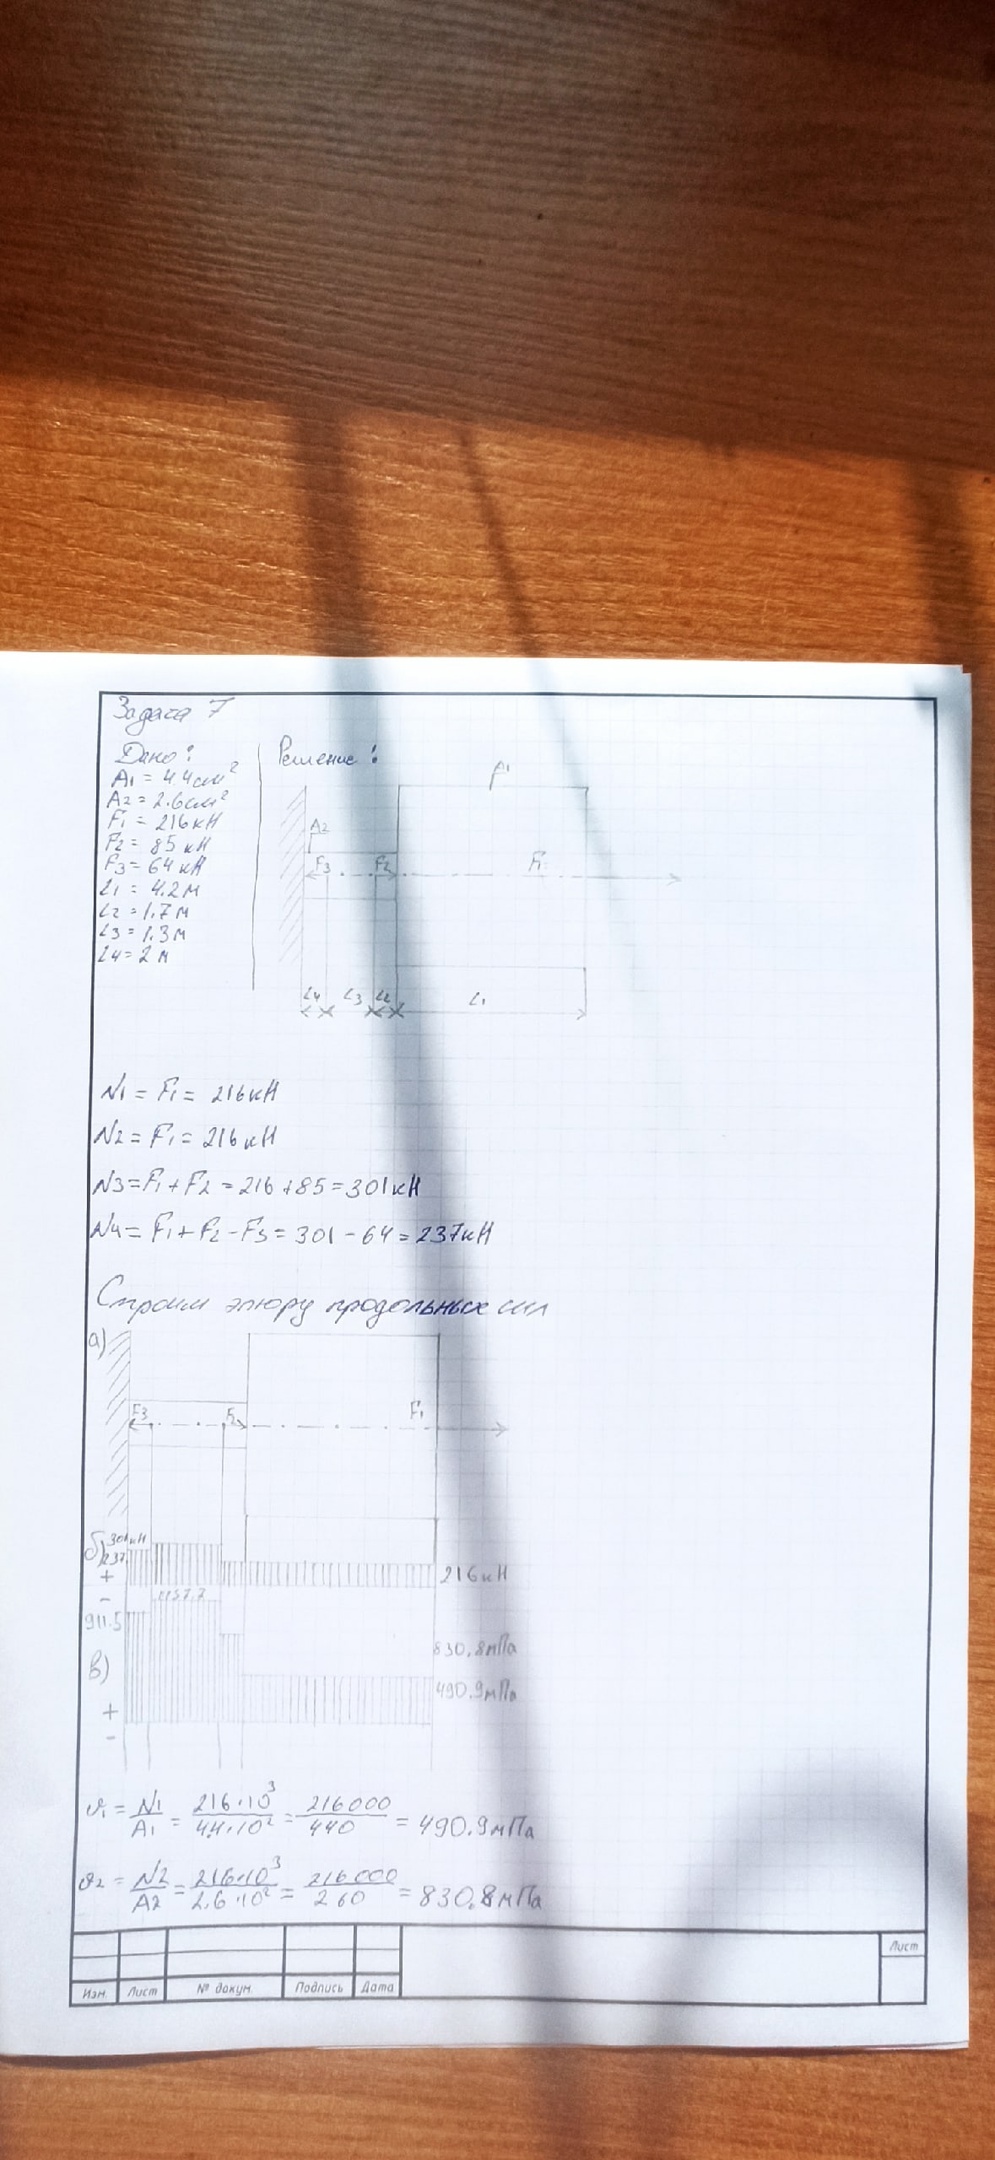 Задача 7
Дано:
A1 = 4.4см²
A2 = 2.6см²
F1 = 216кН
F2 = 85 кН
F3 = 64 кН
L1 = 4.2 м
L2 = 1.7 м
L3 = 1.3 м
L4 = 2 м
Решение:
A1
A2
F3 F2 F1
L4 L3 L2 L1
N1 = F1 = 216кН
N2 = F1 = 216 кН
N3 = F1 + F2 = 216 + 85 = 301 кН
N4 = F1 + F2 - F3 = 301 - 64 = 237кН
Строим эпюру продольных сил
а)
F3 F2 F1
б) 301кН
237
+
-
216 кН
1157.7
911.5
830,8мПа
в)
490.9мПа
+
-
σ1 = N1/A1 = 216·10³/4.4·10² = 216000/440 = 490.9мПа
σ2 = N2/A2 = 216·10³/2.6·10² = 216000/260 = 830.8мПа
Изм. Лист № докум. Подпись Дата
Лист